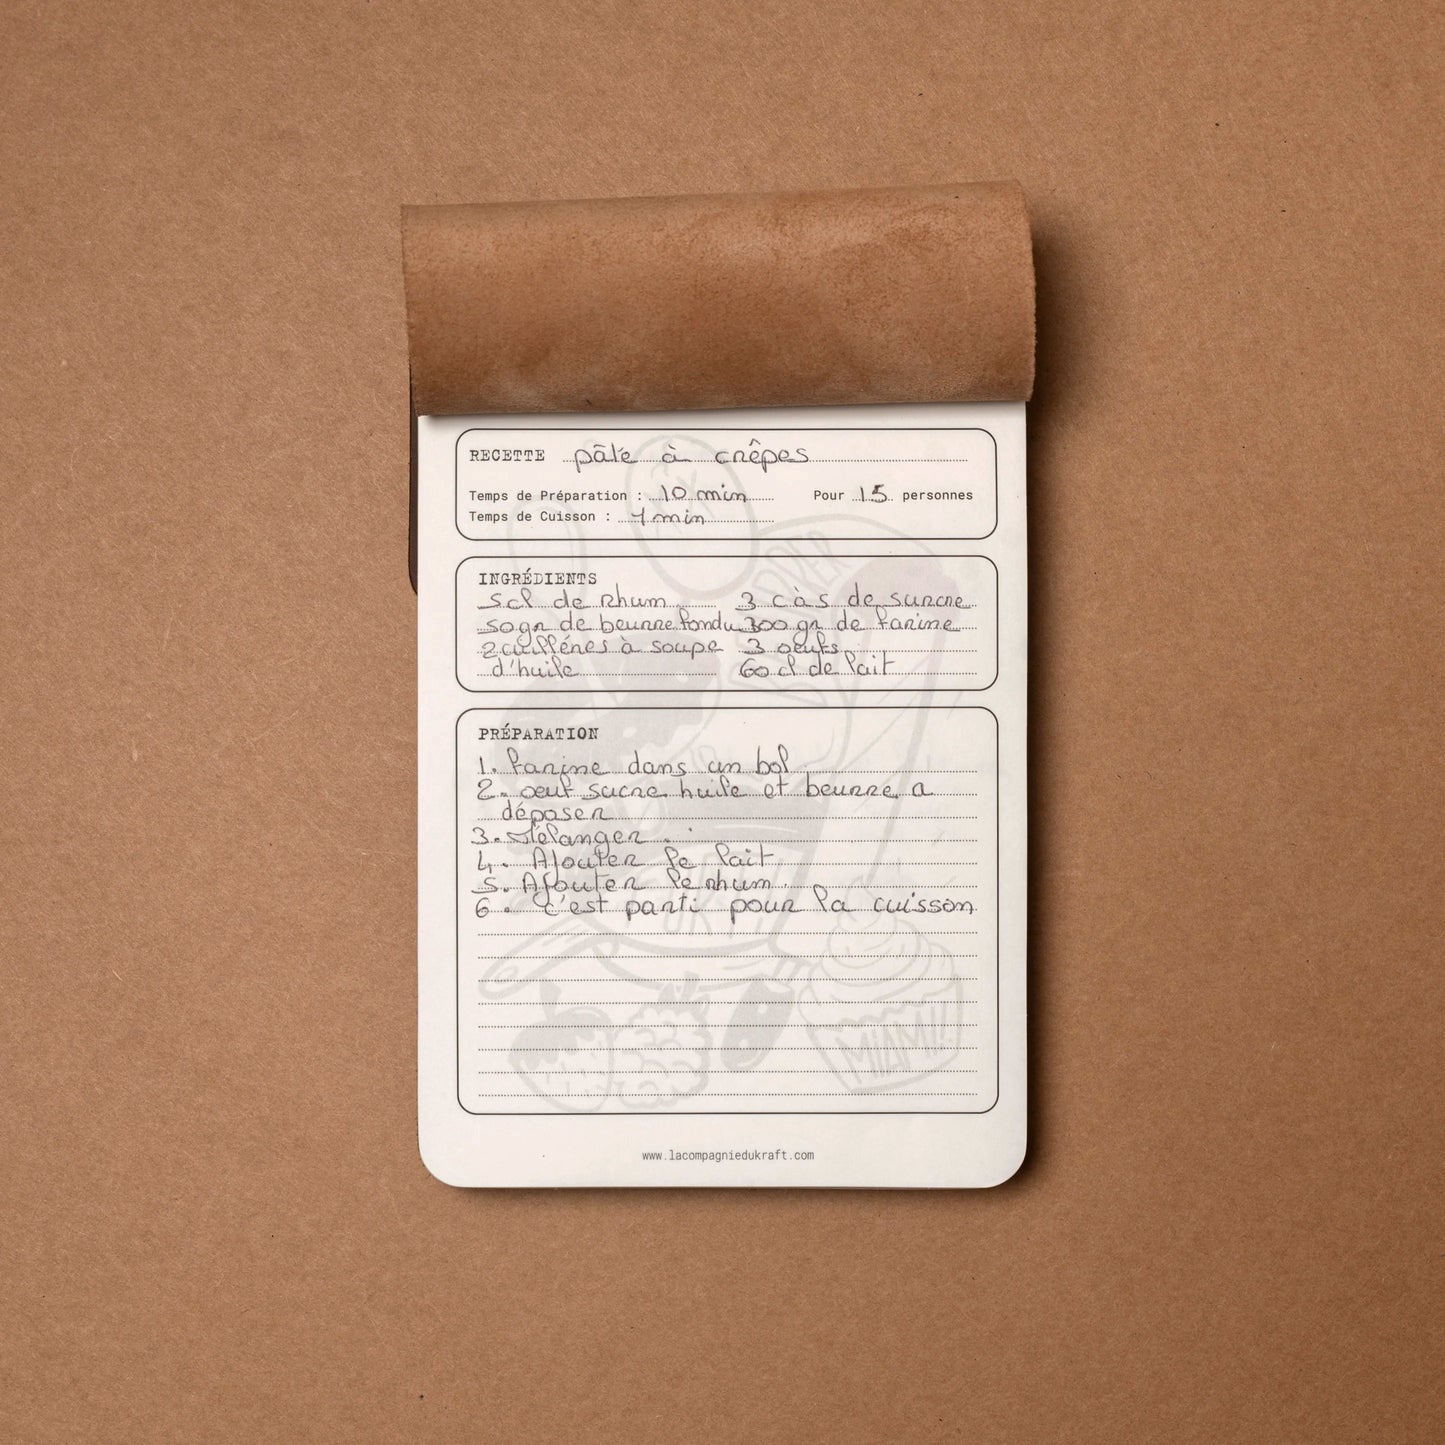 RECETTE pâte à crêpes
Temps de Préparation : 10 min Pour 15 personnes
Temps de Cuisson : 1 min
INGRÉDIENTS
5 cl de rhum
50 gr de beurre fondu
2 cuillères à soupe
d'huile
3 càs de surcre
300 gr de farine
3 oeufs
60 cl de lait
PRÉPARATION
1. farine dans un bol
2. oeuf sucre huile et beurre a
déposer
3. Mélanger
4. Ajouter le lait
5. Ajouter le rhum
6. c'est parti pour la cuisson
MIAM!!
www.lacompagniedukraft.com